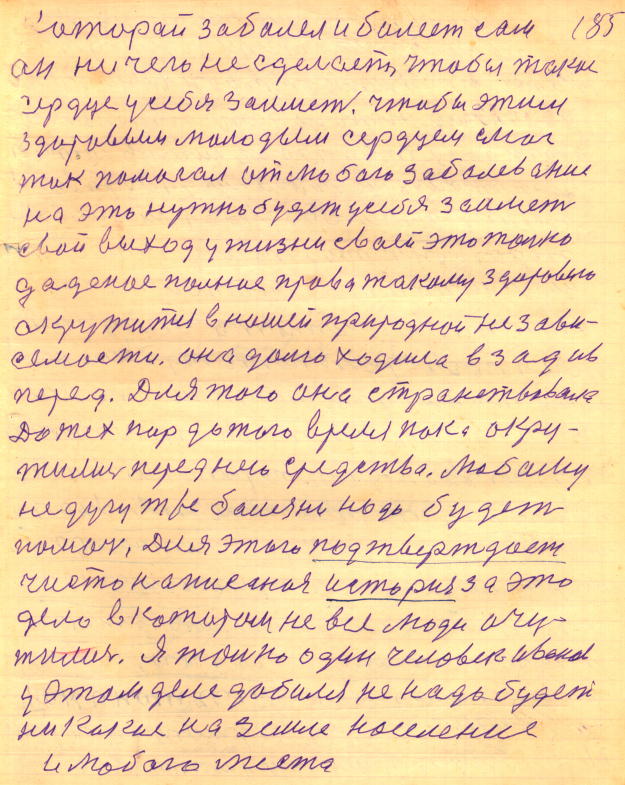 которай заболел и болеет сам 185
он ничего не сделает, чтобы такое
сердце у себя заимет. чтобы этим
здоровым молодым сердцем смог
так помогал от любого заболевание
на это нужно будет у себя заимет
свой выход у жизни своей это только
даденое полное права такому здоровью
окружится в нашей природной незави-
семости. она долго ходила взад и в
перед. Для того она странствовала
До тех пор до того время пока окру-
жилис перед нею средства. Любому
недугу тее болезни надо будет
помоч, Для этого подтверждает
чисто написаная история за это
дело в котором не все люди очу-
тилис. Я только один человек Иванов
у этом деле добился не надо будет
никакое на Земле население
и любого места